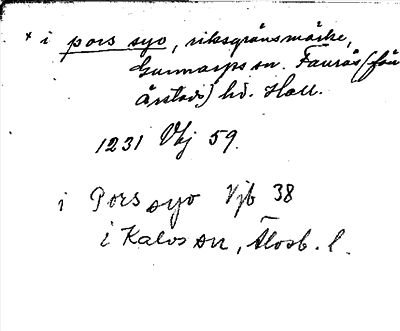 * i pors syo, riksgränsmärke,
Gunnarps sn. Faurås (fån
Årstads) hd. Hall.
1231 Vbj 59.
i Pors syo Vjb 38
i Kalvs sn, Älvsb. l.